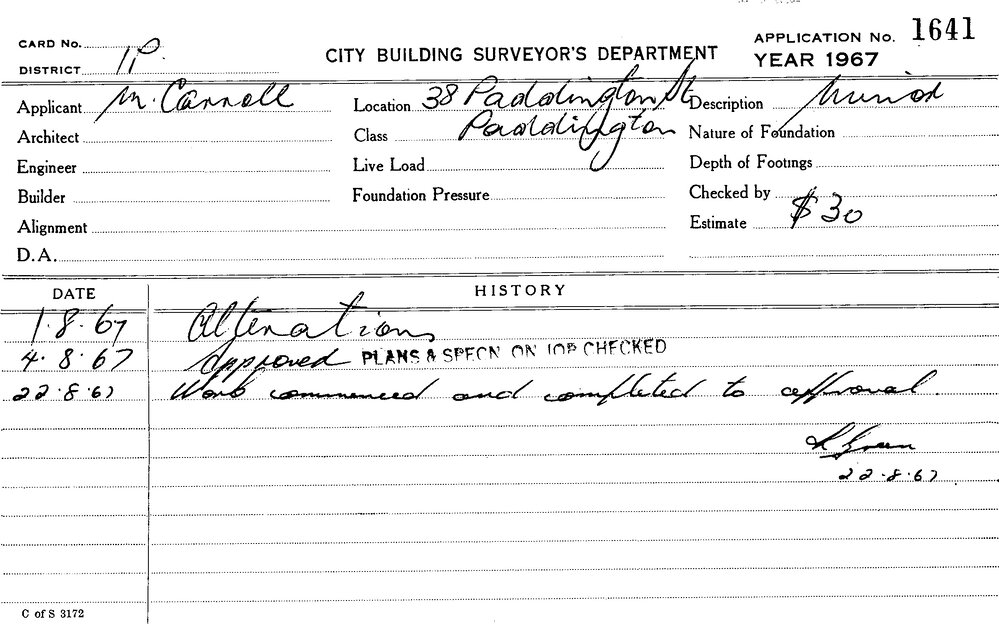 CARD No.
DISTRICT
CITY BUILDING SURVEYOR'S DEPARTMENT
APPLICATION No. 1641
YEAR 1967
Applicant M. Carroll
Location 38 Paddington St
Paddington
Description Minor
Architect
Class
Nature of Foundation
Engineer
Live Load
Depth of Footings
Builder
Foundation Pressure
Checked by
Alignment
Estimate $30
D.A.
DATE HISTORY
1.8.67 Alterations
4.8.67 Approved PLANS & SPECN ON JOB CHECKED
22.8.67 Work commenced and completed to approval.
Green
22.8.67
C of S 3172